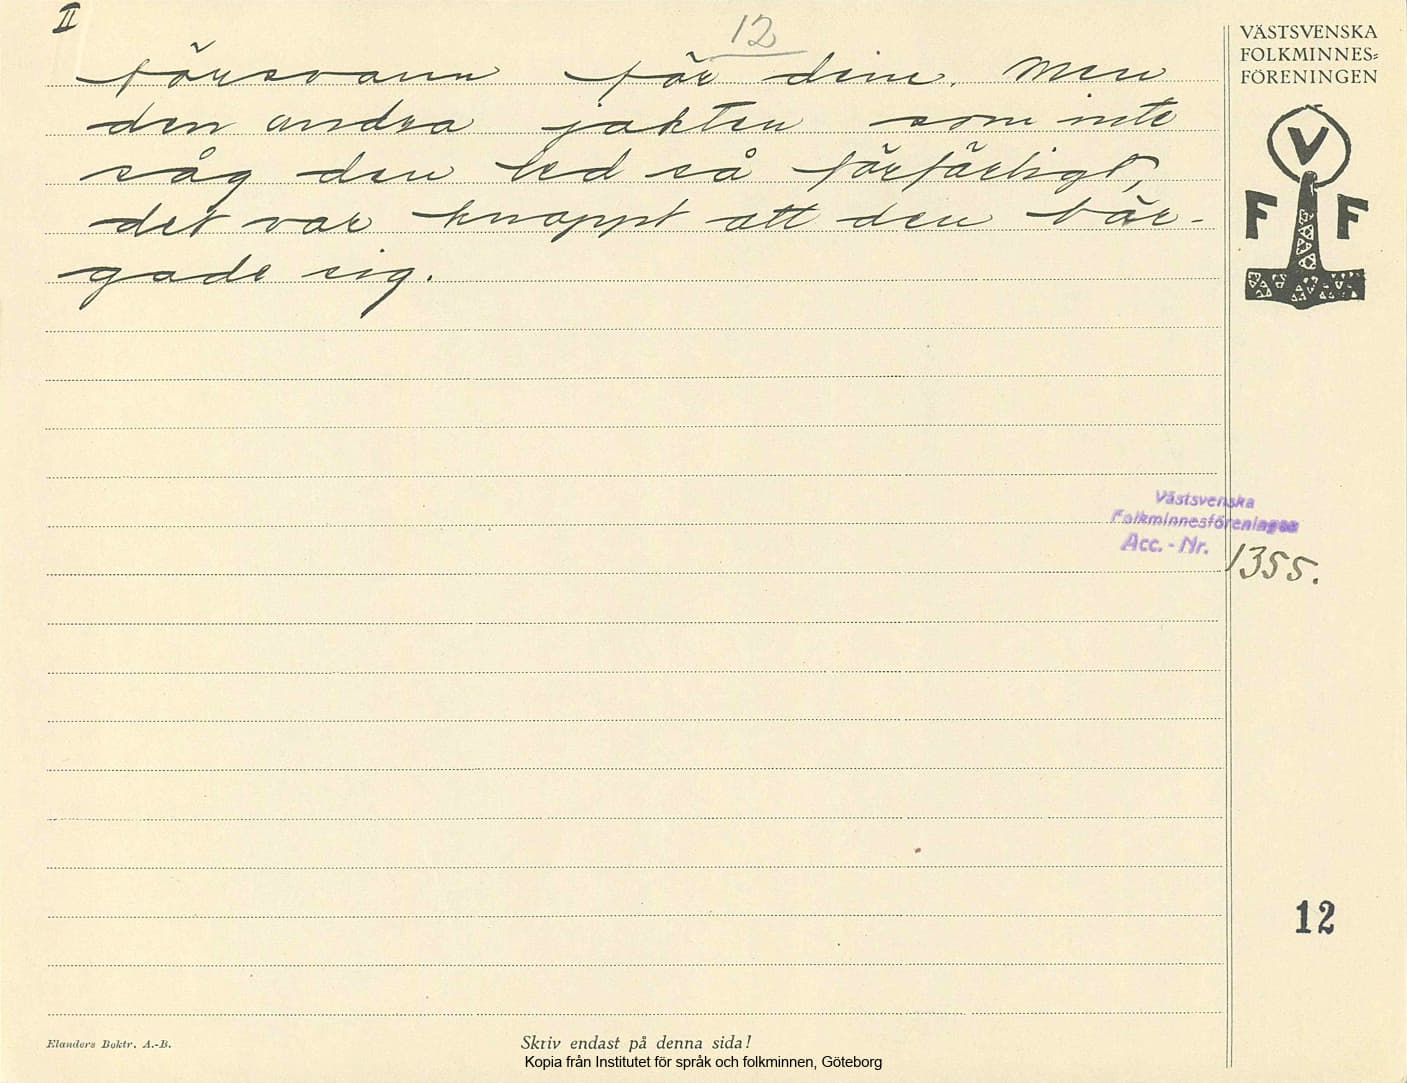 II
12
försvann för dem. Men
den andra jakten som inte
såg den led så förfärligt,
det var knappt att den bär-
gade sig.
VÄSTSVENSKA
FOLKMINNES=
FÖRENINGEN
V
F F
Västsvenska
Folkminnesföreningen
Acc. - Nr. 1355.
12
Elanders Boktr. A.-B.
Skriv endast på denna sida!
Kopia från Institutet för språk och folkminnen, Göteborg